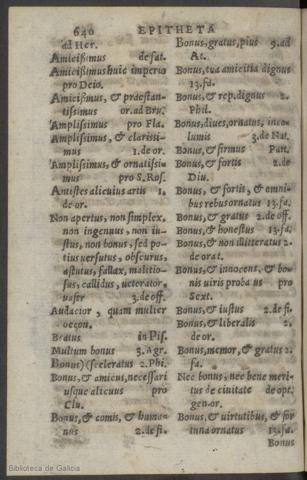 640 EPITHETA
ad Her.
Amicißimus de fat.
Amicißimus huic imperio
pro Deio.
Amicißimus, & præstan-
tissimus or. ad Bru.
Amplissimus pro Fla.
Amplissimus, & clarissi-
mus 1. de or.
Amplissimus, & ornatissi-
mus pro S. Ros.
Antistes alicuius artis 1.
de or.
Non apertus, non simplex,
non ingenuus, non iu-
stus, non bonus, sed po-
tius versutus, obscurus,
astutus, fallax, malitio-
sus, callidus, veterator,
vafer 3. de off.
Audacior, quam mulier
oecon.
Beatus in Pis.
Multum bonus 3. Agr.
Bonus) (sceleratus 2. Phi.
Bonus, & amicus, necessari
usque alicuius pro
Clu.
Bonus, & comis, & huma-
nus 2. de fi.
Bonus, gratus, pius 9. ad
At.
Bonus, tua amicitia dignus
13. fa.
Bonus, & rep. dignus 2.
Phil.
Bonus, dives, ornatus, inco-
lumis 3. de Nat.
Bonus, & firmus Part.
Bonus, & fortis 2. de
Diu.
Bonus, & fortis, & omni-
bus rebus ornatus 13. fa.
Bonus, & gratus 2. de off.
Bonus, & honestus 13. fa.
Bonus, & non illitteratus 2.
de orat.
Bonus, & innocent, & bo-
nis viris probatus pro
Sext.
Bonus, & iustus 2. de fi.
Bonus, & liberalis 2.
de or.
Bonus, memor, & gratus 2.
fa.
Nec bonus, nec bene meri-
tus de civitate de opt.
gen. or.
Bonus, & uirtutibus, & for
tuna ornatus 13. fa.
Bonus
Biblioteca de Galicia